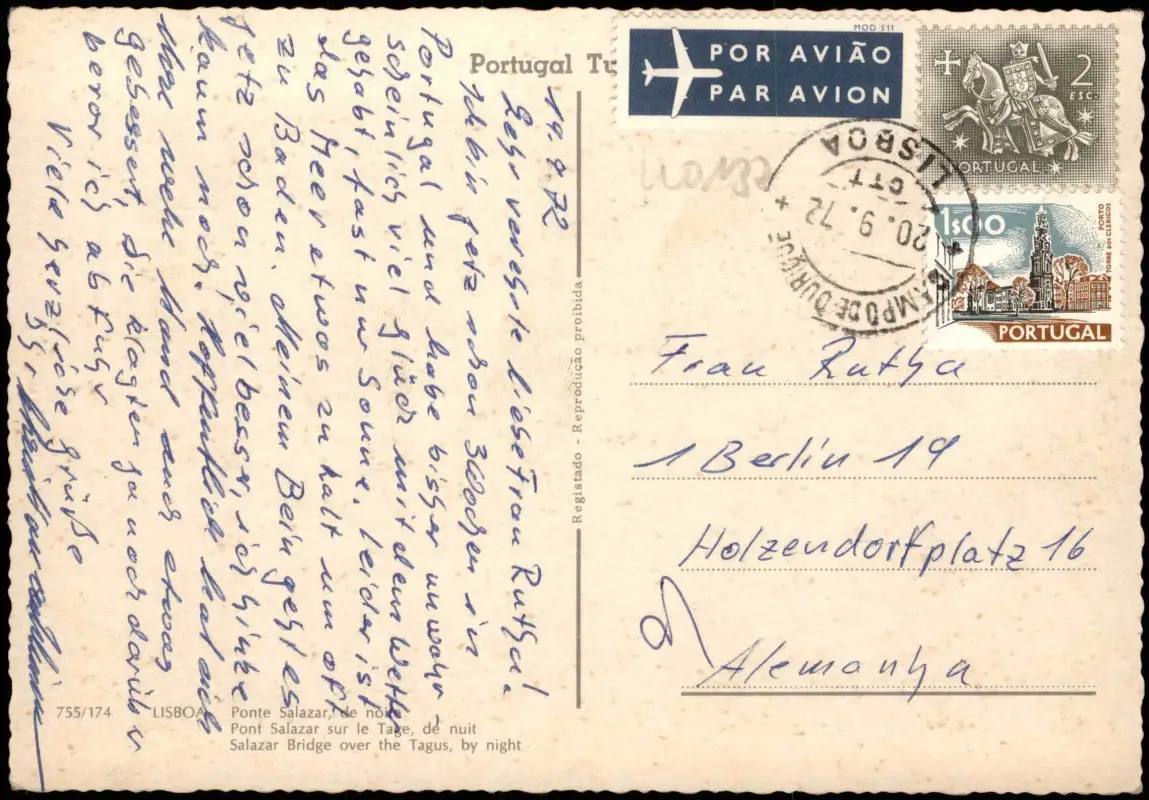 Portugal Tu
MOD 511
POR AVIÃO
PAR AVION
2
ESC.
PORTUGAL
1$00
PORTO
TORRE DOS CLERIGOS
PORTUGAL
LISBOA
CTT
20. 9. 72
CAMPO DE OURIQUE
19.9.72
Sehr verehrte liebe Frau Rutha!
Ich bin jetz schon 3 Wochen in
Portugal und habe bisher unwahr-
scheinlich viel Glück mit dem Wetter
gehabt, fast nur Sonne. Leider ist
das Meer etwas zu kalt um oft
zu Baden. Meinem Bein geht es
jetz schon viel besser, ich hinke
kaum noch. Hoffentlich hat sich
Ihre Hand auch etwas
gebessert, Sie klagten ja noch darüber
bevor ich abfuhr
Viele herzliche Grüße
Frau Rutha
1 Berlin 19
Holzendorfplatz 16
Alemanha
Registado - Reprodução proibida
755/174 LISBOA Ponte Salazar, de noite
Pont Salazar sur le Tage, de nuit
Salazar Bridge over the Tagus, by night